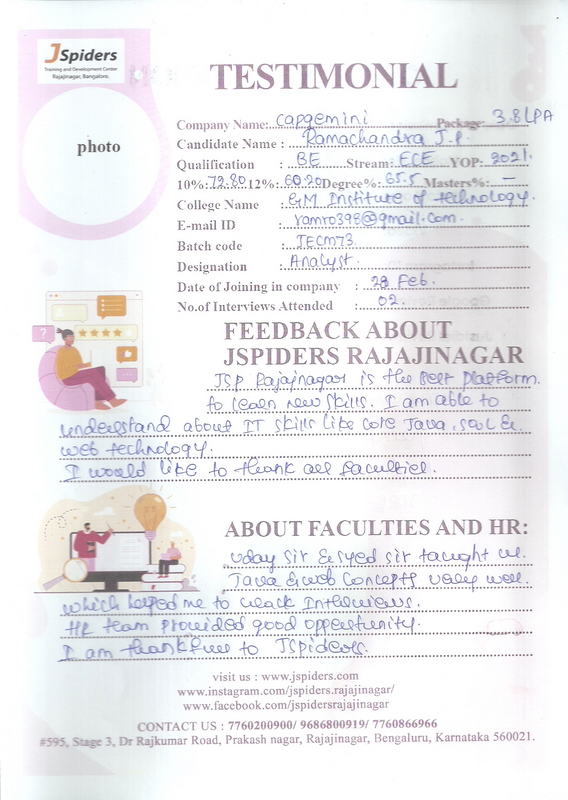 JSpiders
Training and Development Center
Rajajinagar, Bangalore.
TESTIMONIAL
photo
Company Name: Capgemini Package: 3.8 LPA
Candidate Name : Ramachandra J.P.
Qualification : BE Stream: ECE YOP: 2021.
10%: 72.80 12%: 60.20 Degree%: 65.5 Masters%: —
College Name : GM Institute of technology.
E-mail ID : ramro398@gmail.com.
Batch code : JECM73
Designation : Analyst.
Date of Joining in company : 28 Feb.
No.of Interviews Attended : 02.
FEEDBACK ABOUT
JSPIDERS RAJAJINAGAR
JSP Rajajnagar is the best Platform.
to learn new skills. I am able to
understand about IT skills like core Java, SQL &
web technology.
I would like to thank all faculties.
ABOUT FACULTIES AND HR:
Uday Sir & Syed Sir taught us.
Java & web Concepts very well.
which helped me to crack Interviews.
HR team provided good opportunity.
I am thankful to JSpiders.
visit us : www.jspiders.com
www.instagram.com/jspiders.rajajinagar/
www.facebook.com/jspidersrajajinagar
CONTACT US : 7760200900/ 9686800919/ 7760866966
#595, Stage 3, Dr Rajkumar Road, Prakash nagar, Rajajinagar, Bengaluru, Karnataka 560021.